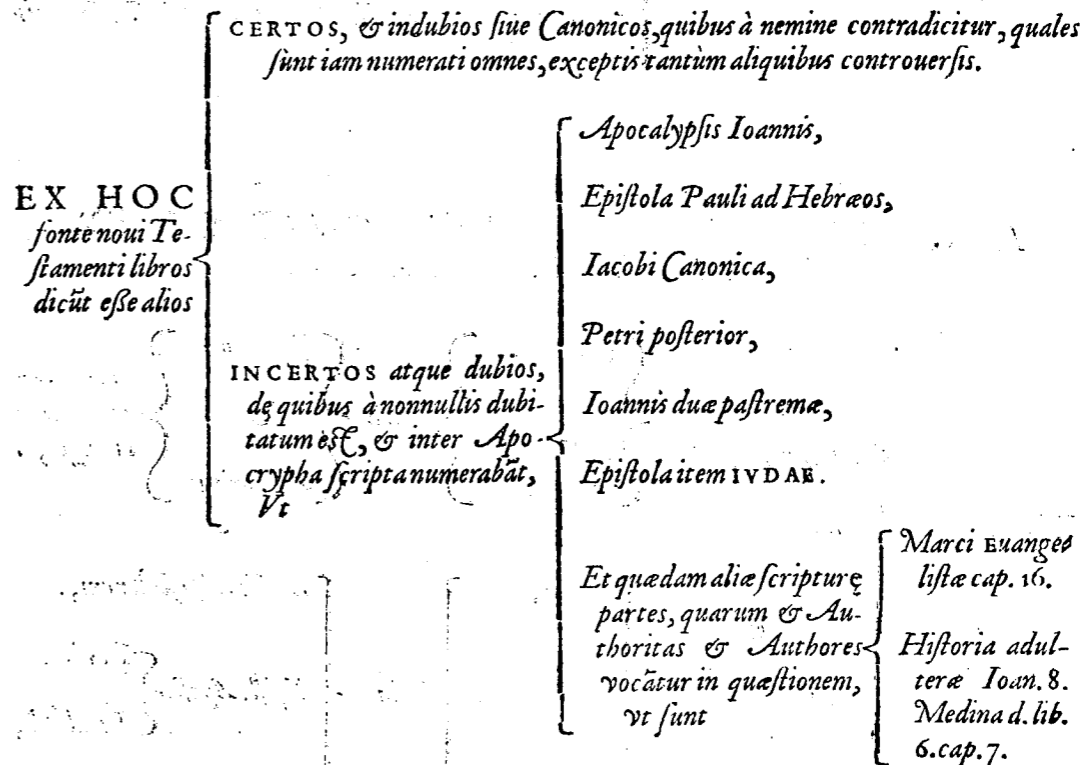 CERTOS, & indubios ſiue Canonicos, quibus à nemine contradicitur, quales
ſunt iam numerati omnes, exceptis tantùm aliquibus controuerſis.
EX HOC
fonte noui Te-
ſtamenti libros
dicũt eſſe alios
INCERTOS atque dubios,
de quibus à nonnullis dubi-
tatum eſt, & inter Apo-
crypha ſcripta numerabãt,
Vt
Apocalypſis Ioannis,
Epiſtola Pauli ad Hebræos,
Iacobi Canonica,
Petri poſterior,
Ioannis duæ paſtremæ,
Epiſtola item IVDAE.
Et quædam aliæ ſcripturę
partes, quarum & Au-
thoritas & Authores
vocãtur in quæſtionem,
vt ſunt
Marci Euange
liſtæ cap. 16.
Hiſtoria adul-
teræ Ioan. 8.
Medina d. lib.
6. cap. 7.